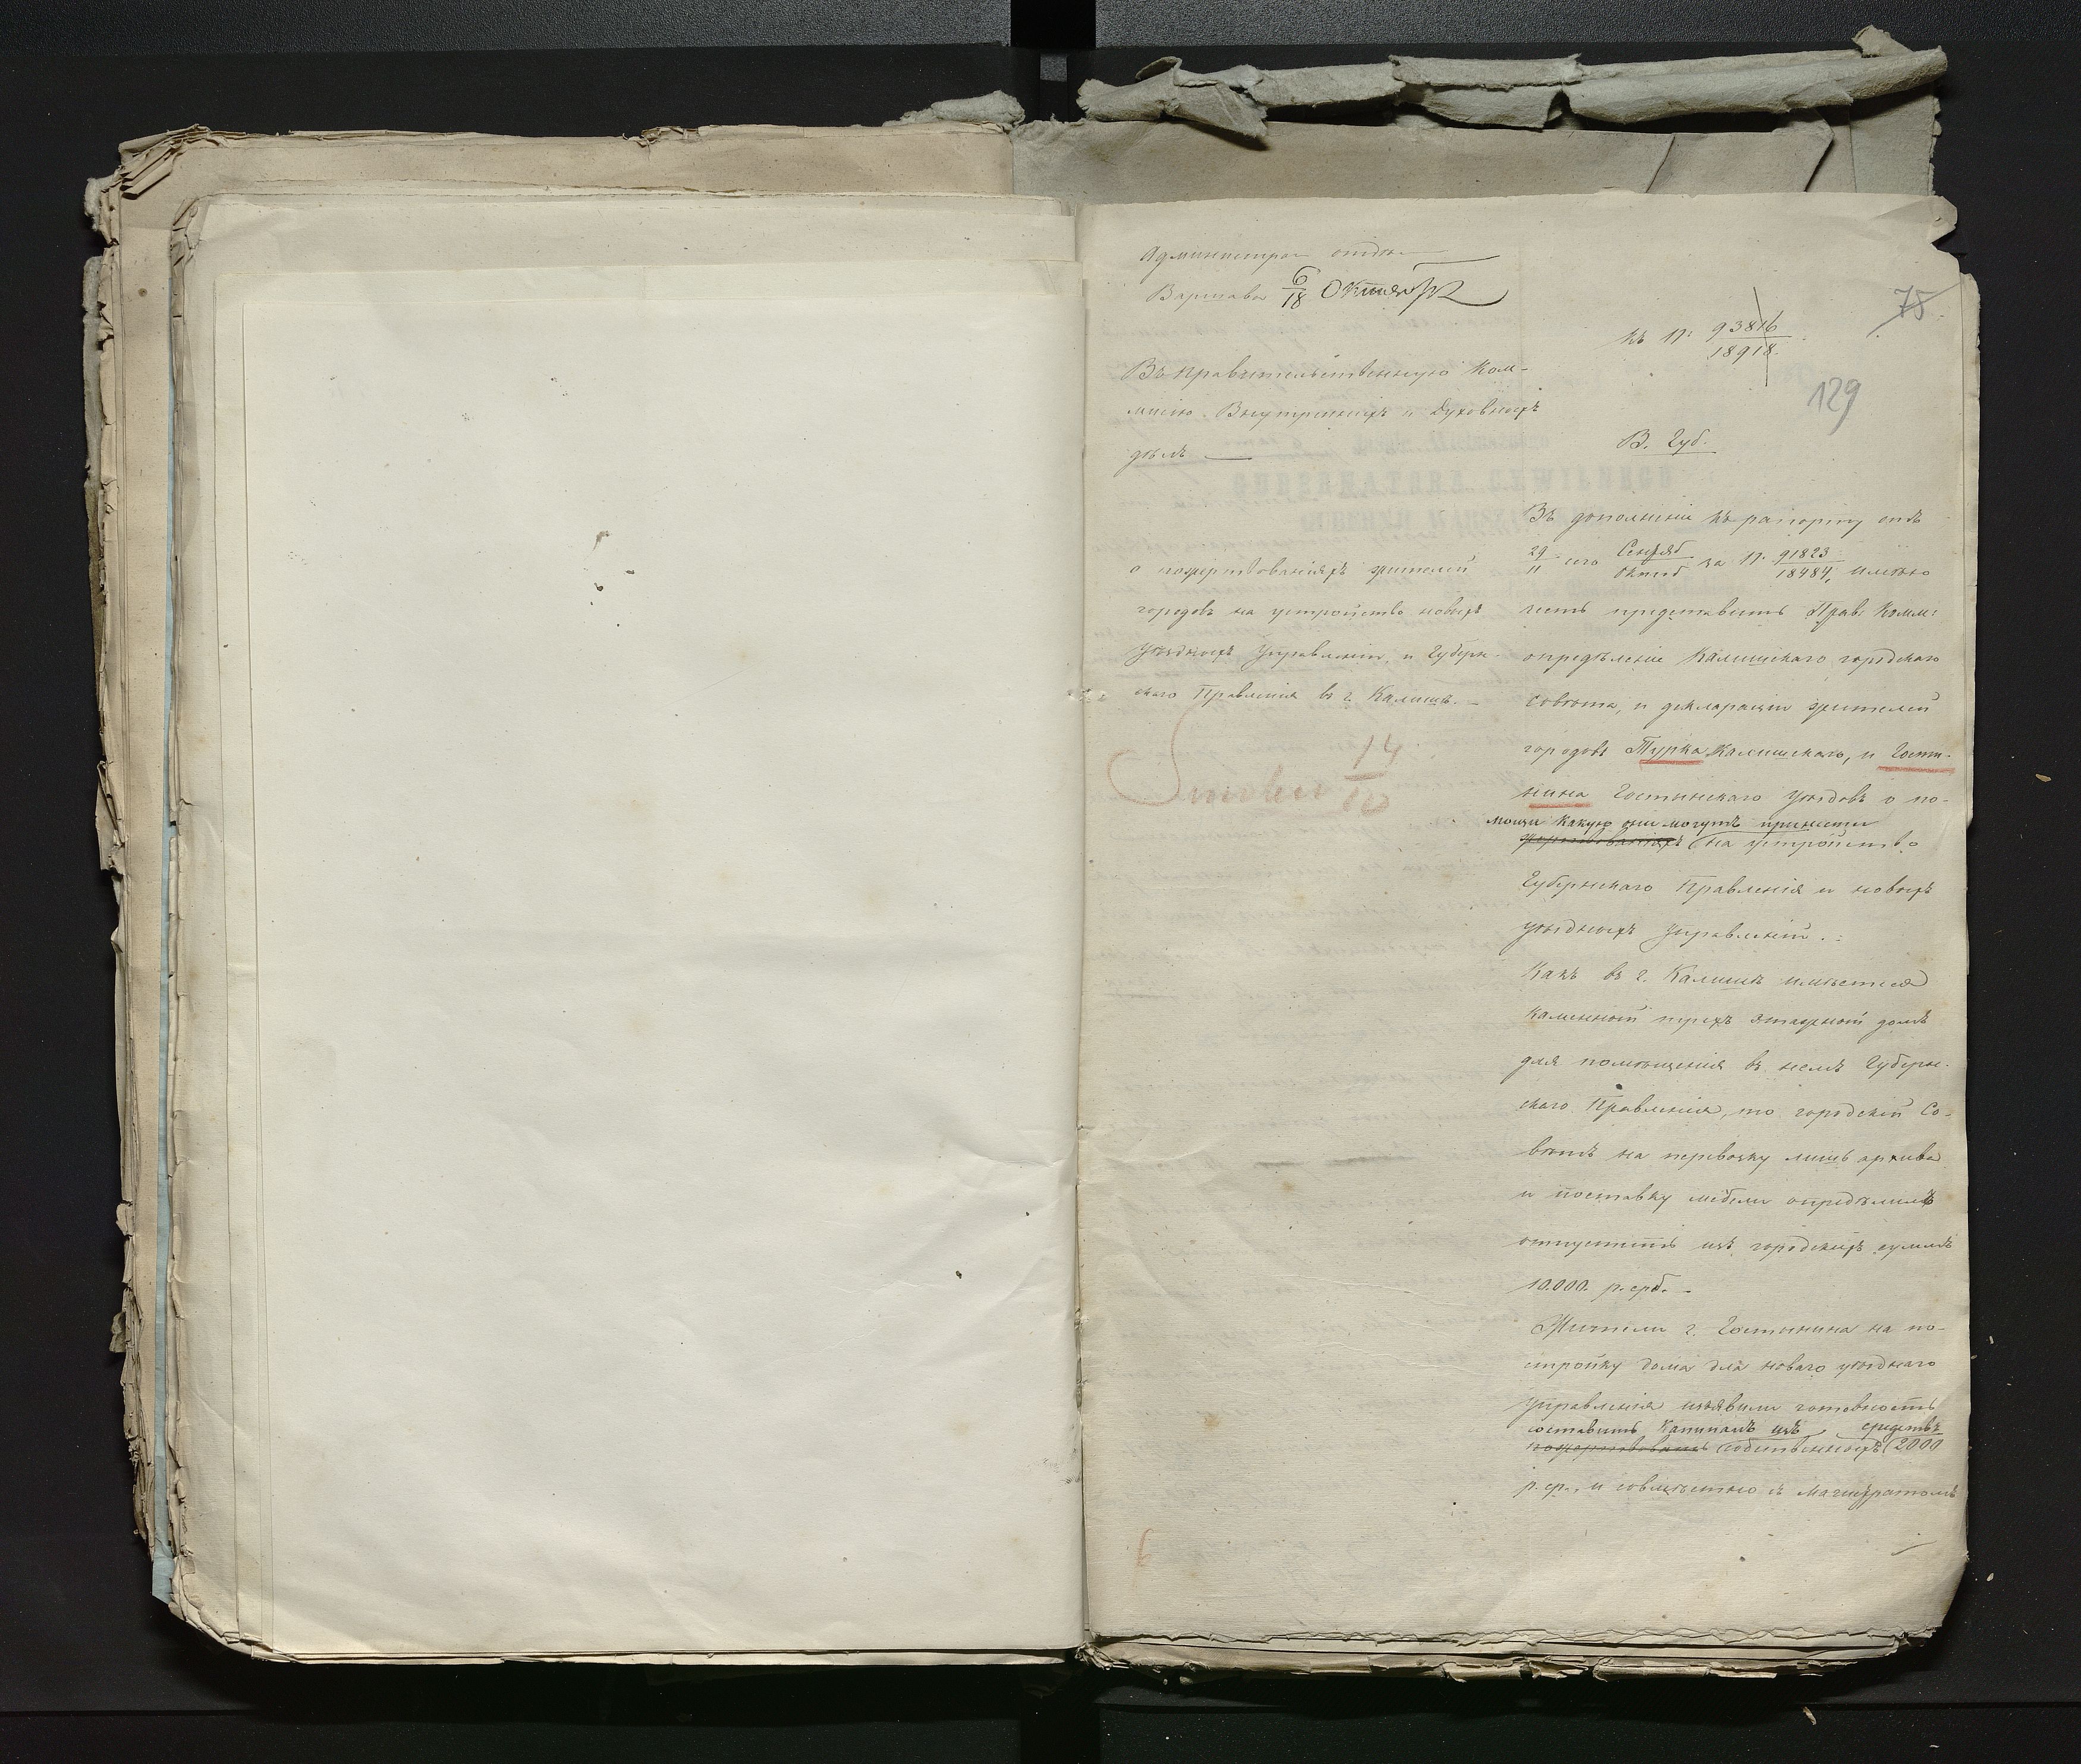 Администрац отдѣл
Варшава 6/18 Октября
къ №: 93816/18918.
75
129
Въ Правительственную Ком-
мисію Внутреннихъ и Духовныхъ
дѣлъ
В. Губ.
о пожертвованіяхъ жителей
городовъ на устройство новыхъ
Уѣздныхъ Управленій, и Губерн-
скаго Правленія въ г. Калишѣ. –
14/10
Въ дополненіи къ рапорту отъ
29/11 сего Сентяб/Октяб за №. 91823/18484, имѣю
честь представить Прав: Комм:
опредѣленіе Калишскаго городскаго
Совѣта, и декларации жителей
городовъ Турка Калишскаго, и Гости-
нина Гостынскаго Уѣздовъ о по-
мощи какую они могутъ принести
жертвованіяхъ на устройство
Губернскаго Правленія и новыхъ
уѣздныхъ Управленій.
Какъ въ г. Калишѣ имѣется
каменный трехъ этажный домъ
для помѣщенія въ немъ Губерн-
скаго Правленія, то городскій Со-
вѣтъ на перевозку лишь архива
и поставку мебели опредѣлилъ
отпустить изъ городскихъ суммъ
10.000 р. срб. –
Жители г. Гостынина на по-
стройку дома для новаго уѣзднаго
Управленія изъявили готовность
составить капиталъ изъ средствъ
пожертвовать собственныхъ 2000
р. ср., и совмѣстно съ Магистратомъ